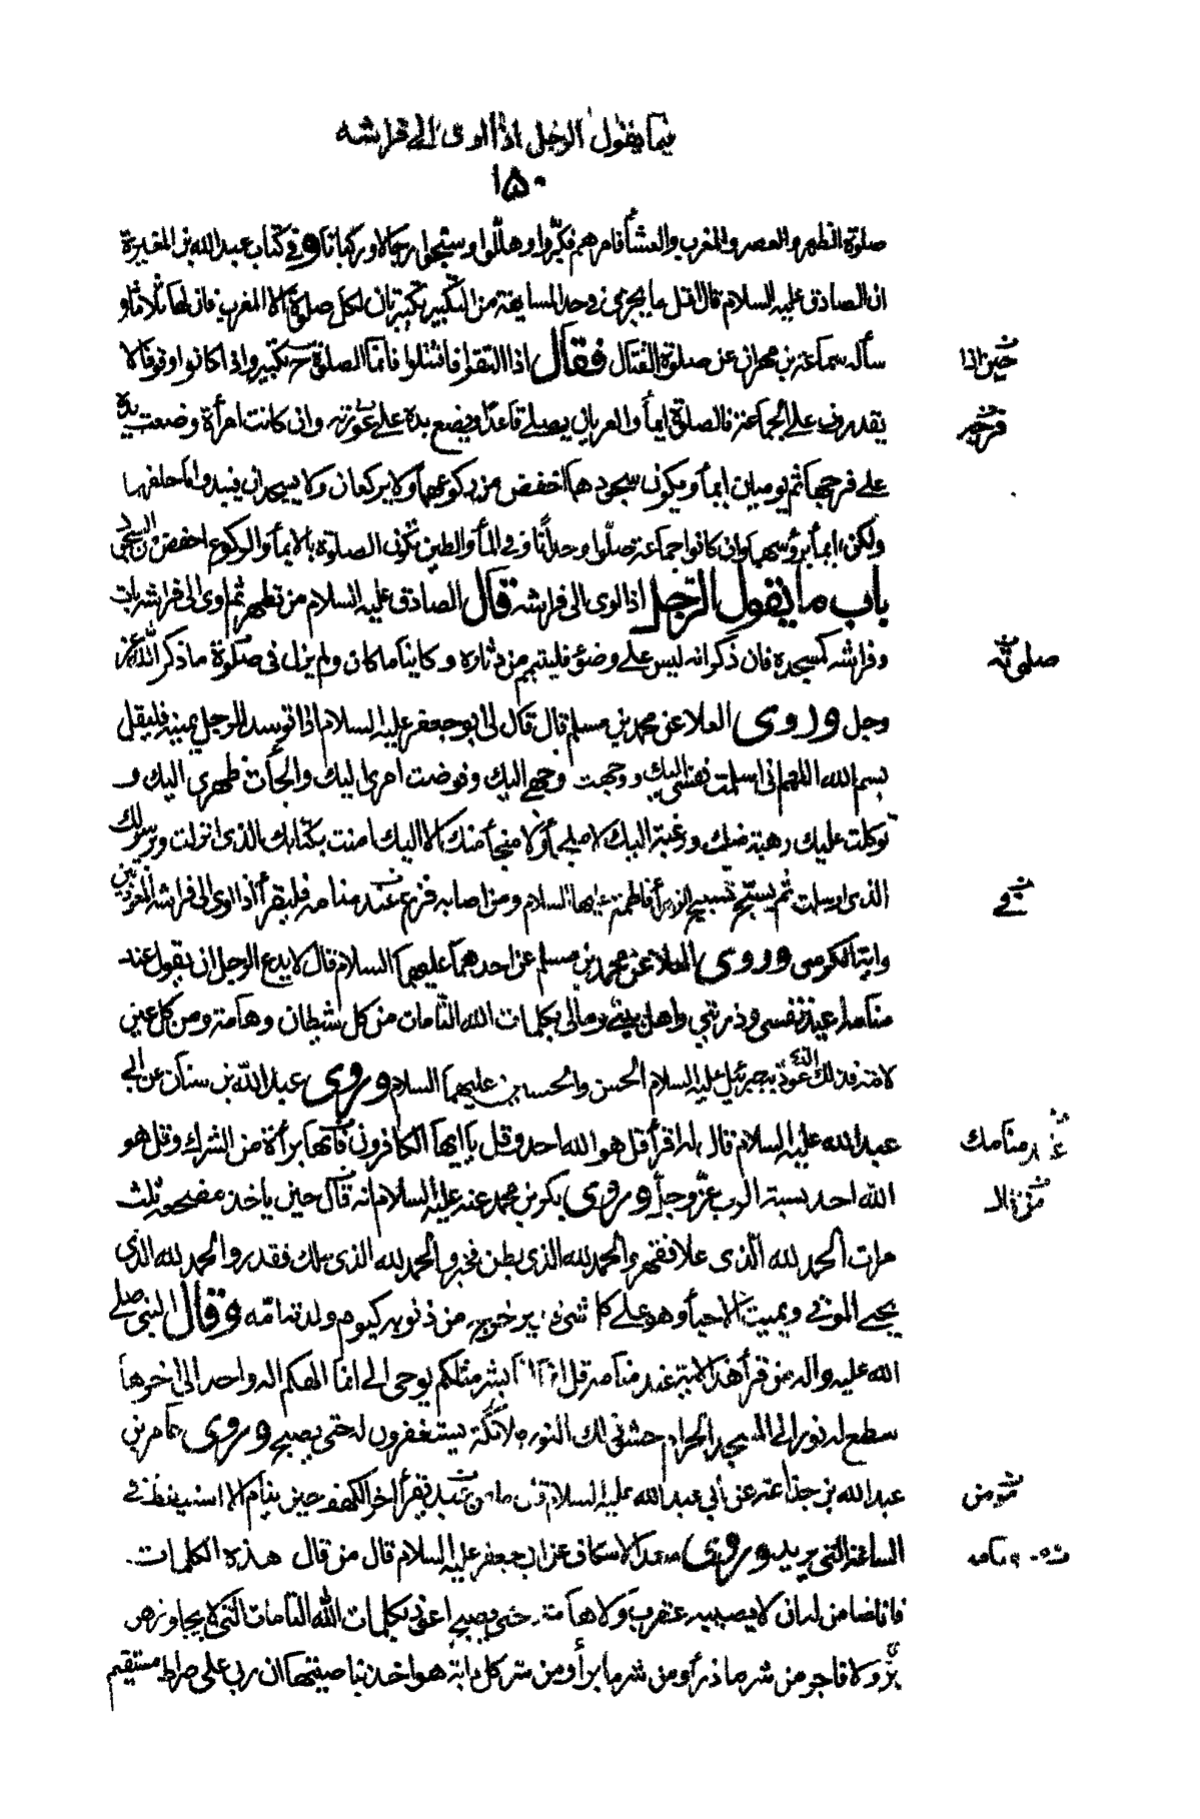 فيما يقول الرجل اذا اوى الى فراشه
١٥٠
صلوة الظهر والعصر والمغرب والعشأ فامرهم فكبّروا وهلّلوا وسبّحوا رجالا وركبانا وفي كتاب عبد الله بن المغيرة
ان الصادق عليه السلام قال اقل ما يجزى في حد المسايفة من التكبير تكبيرتان لكل صلوة الا المغرب فان لها ثلاثا و
سأله سماعة بن مهران عن صلوة القتال فقال اذا التقوا فاقتتلوا فانما الصلوة ح تكبير واذا كانوا وقوفا لا
حينئذ
يقدرون على الجماعة فالصلوة ايمأ والعريان يصلى قاعدا ويضع يده على عورته وان كانت امرأة وضعت يده
على فرجها ثم يوميان ايمأ ويكون سجودهما اخفض من ركوعهما ولا يركعان ولا يسجدان فيبدو ما خلفهما
ولكن ايمأ برؤسهما وان كانوا جماعة صلّوا وحدانا وفي المأ والطين تكون الصلوة بالايمأ والركوع اخفض من السجود
باب ما يقول الرّجل اذا اوى الى فراشه قال الصادق عليه السلام من تطهر ثم اوى الى فراشه بات
وفراشه كمسجده فان ذكر انه ليس على وضؤ فليتيمم من دثاره وكاينا ما كان ولم يزل فى صلوة ما ذكر الله عز
صلوته
وجل وروى العلا عن محمد بن مسلم قال قال لى ابو جعفر عليه السلام اذا توسد الرجل يمينه فليقل
بسم الله اللهم انى اسلمت نفسى اليك ووجهت وجهى اليك وفوضت امرى اليك والجأت ظهرى اليك و
توكلت عليك رهبة منك ورغبة اليك لا ملجأ ولا منجأ منك الا اليك امنت بكتابك الذى انزلت وبرسولك
الذى ارسلت ثم يسبّح تسبيح الزهرأ فاطمة عليها السلام ومن اصابه فزع عند منامه فليقرأ اذا اوى الى فراشه المعوذتين
في
واية الكرسى وروى العلا عن محمد بن مسلم عن احدهما عليهما السلام قال لا يدع الرجل ان يقول عند
منامه اعيذ نفسى وذريتي واهل بيتى ومالى بكلمات الله التّامات من كل شيطان وهامة ومن كل عين
لامة فذلك الذى عوذ به جبرئيل عليه السلام الحسن والحسين عليهما السلام وروى عبد الله بن سنان عن ابى
عبد الله عليه السلام قال له اقرأ قل هو الله احد وقل يا ايها الكافرون فانها برأة من الشرك وقل هو
عند منامك
الله احد نسبة الرب عزّ وجلّ وروى بكر بن محمد عنه عليه السلام انه قال حين ياخذ مضجعه ثلث
مرات الحمد لله الّذى علا فقهر والحمد لله الذى بطن فخبر والحمد لله الذى ملك فقدر والحمد لله الذى
يحيى الموتى ويميت الاحيأ وهو على كل شئ قدير خرج من ذنوبه كيوم ولدته امّه وقال النبى صلى
الله عليه واله من قرأ هذه الاية عند منامه قل انما انا بشر مثلكم يوحى الى انما الهكم اله واحد الى اخرها
سطع له نور الى المسجد الحرام حشو ذلك النور ملائكة يستغفرون له حتى يصبح وروى عامر بن
عبد الله بن جذاعة عن أبي عبد الله عليه السلام قال ما من عبد يقرأ اخر الكهف حين ينام الا استيقظ في
من
الساعة التى يريد وروى سعد الاسكاف عن ابى جعفر عليه السلام قال من قال هذه الكلمات
فانا ضامن له ان لا يصيبه عقرب ولا هامة حتى يصبح اعوذ بكلمات الله التامات التى لا يجاوزهن
برّ ولا فاجر من شر ما ذرأ ومن شر ما برأ ومن شر كل دابة هو اخذ بناصيتها ان ربى على صراط مستقيم